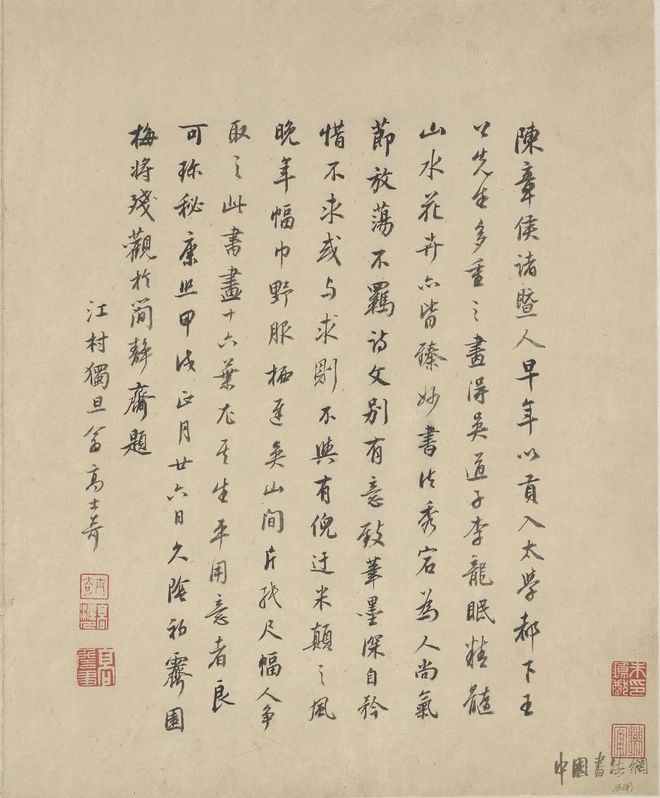 陳章侯諸暨人早年以貢入太學都下王
公先生多重之畫得吳道子李龍眠精髓
山水花卉亦皆臻妙書法秀宕為人尚氣
節放蕩不羈詩文別有意致筆墨深自矜
惜不求或与求則不與有倪迂米顛之風
晚年幅巾野服栖遲吳山間片紙尺幅人争
取之此書畫十六葉尤其生平用意者良
可珎秘康熙甲戌正月廿六日久陰初霽園
梅將殘觀於簡靜齋題
江村獨旦翁高士奇
中國書法網